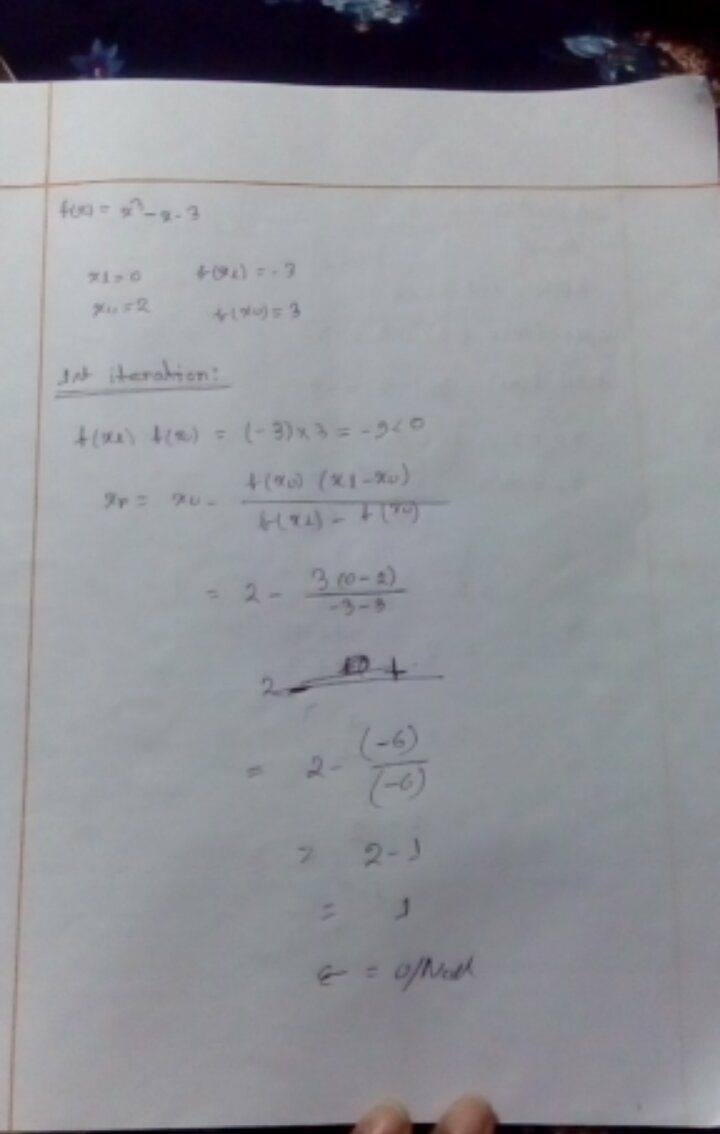 f(x) = x³ - x - 3
xl = 0 f(xl) = -3
xu = 2 f(xu) = 3
1st iteration:
f(xl) f(xu) = (-3) x 3 = -9 < 0
xr = xu - f(xu) (xl - xu) / f(xl) - f(xu)
= 2 - 3(0-2) / -3-3
2
= 2 - (-6) / (-6)
= 2 - 1
= 1
ϵ = 0/Null